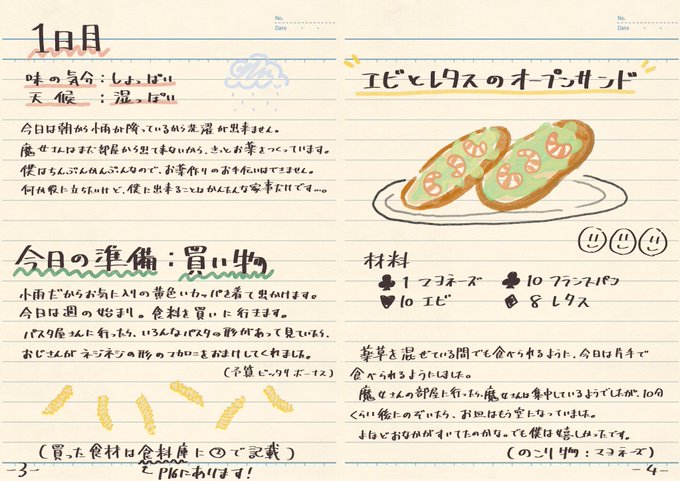 No.
Date
1日目
味の気分：しょっぱい
天候：湿っぽい
今日は朝から小雨が降っているから洗濯が出来ません。
魔女さんはまだ部屋から出て来ないから、きっとお薬をつくっています。
僕はちんぷんかんぷんなので、お薬作りのお手伝いはできません。
何か役に立ちたいけど、僕に出来ることはかんたんな家事だけです…。
今日の準備：買い物
小雨だからお気に入りの黄色いカッパを着て出かけます。
今日は週の始まり。食料を買いに行きます。
パスタ屋さんに行ったら、いろんなパスタの形があって見ていたら、
おじさんがネジネジの形のマカロニをおまけしてくれました。
(予算ピッタリボーナス)
(買った食材は食料庫に②で記載)
P16にあります!
-3-
No.
Date
エビとレタスのオープンサンド
材料
♣1 マヨネーズ
♣10 フランスパン
♥10 エビ
♦8 レタス
薬草を混ぜている間でも食べられるように、今日は片手で
食べられるようにしました。
魔女さんの部屋に行ったら、魔女さんは集中しているようでしたが、10分
くらい後にのぞいたら、お皿はもう空になっていました。
よほどおなかがすいてたのかな。でも僕は嬉しかったです。
(のこり物：マヨネーズ)
-4-